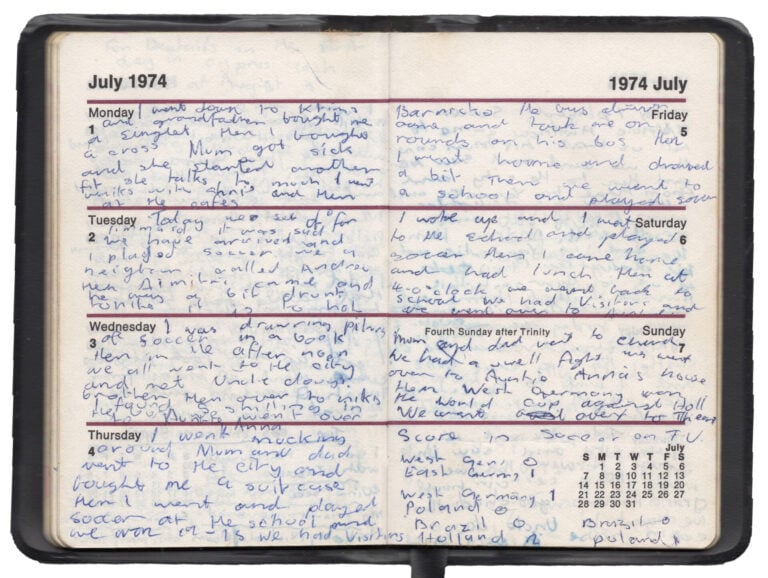 July 1974
Monday
1
I went down to
and grandfather bought me
a singlet then I bought
a cross Mum got sick
and she started another
fit she talks to much I went
walks with and then
at the gates
Tuesday
2
Today we set of for
it was sad for
we have arrived and
I played soccer we a
neighbour called Andrew
then Dimitri came and
he was a bit drunk
tonite it is to hot
Wednesday
3
I was drawring pitures
of Soccer in a book
then in the after noon
we all went to the city
and met Uncle
brother then over to Nicks
he found
to Aunty went over
Anna
Thursday
4
I went mucking
around Mum and dad
went to the city and
bought me a suitcase
then I went and played
soccer at the school and
we won 17-15 we had visitors
1974 July
Friday
5
He bus driver
came and took me on
rounds on his bus then
I went home and drawed
a bit then we went to
a school and played soccer
Saturday
6
I woke up and I went
to the school and played
soccer then I came home
and had lunch then at
4-o'clock we went back to
school we had visitors and
we went over to
Fourth Sunday after Trinity
Sunday
7
Mum and dad went to church
We had a small fight we went
over to Auntie Anna's house
then West Germany won
the World Cup against Holl
We went over to
Score in Soccer on T.V.
West Germ. 0
East Germ 1
West Germany 1
Poland 0
Brazil 0
Holland 2
Brazil 0
Poland 1
July
S M T W T F S
1 2 3 4 5 6
7 8 9 10 11 12 13
14 15 16 17 18 19 20
21 22 23 24 25 26 27
28 29 30 31